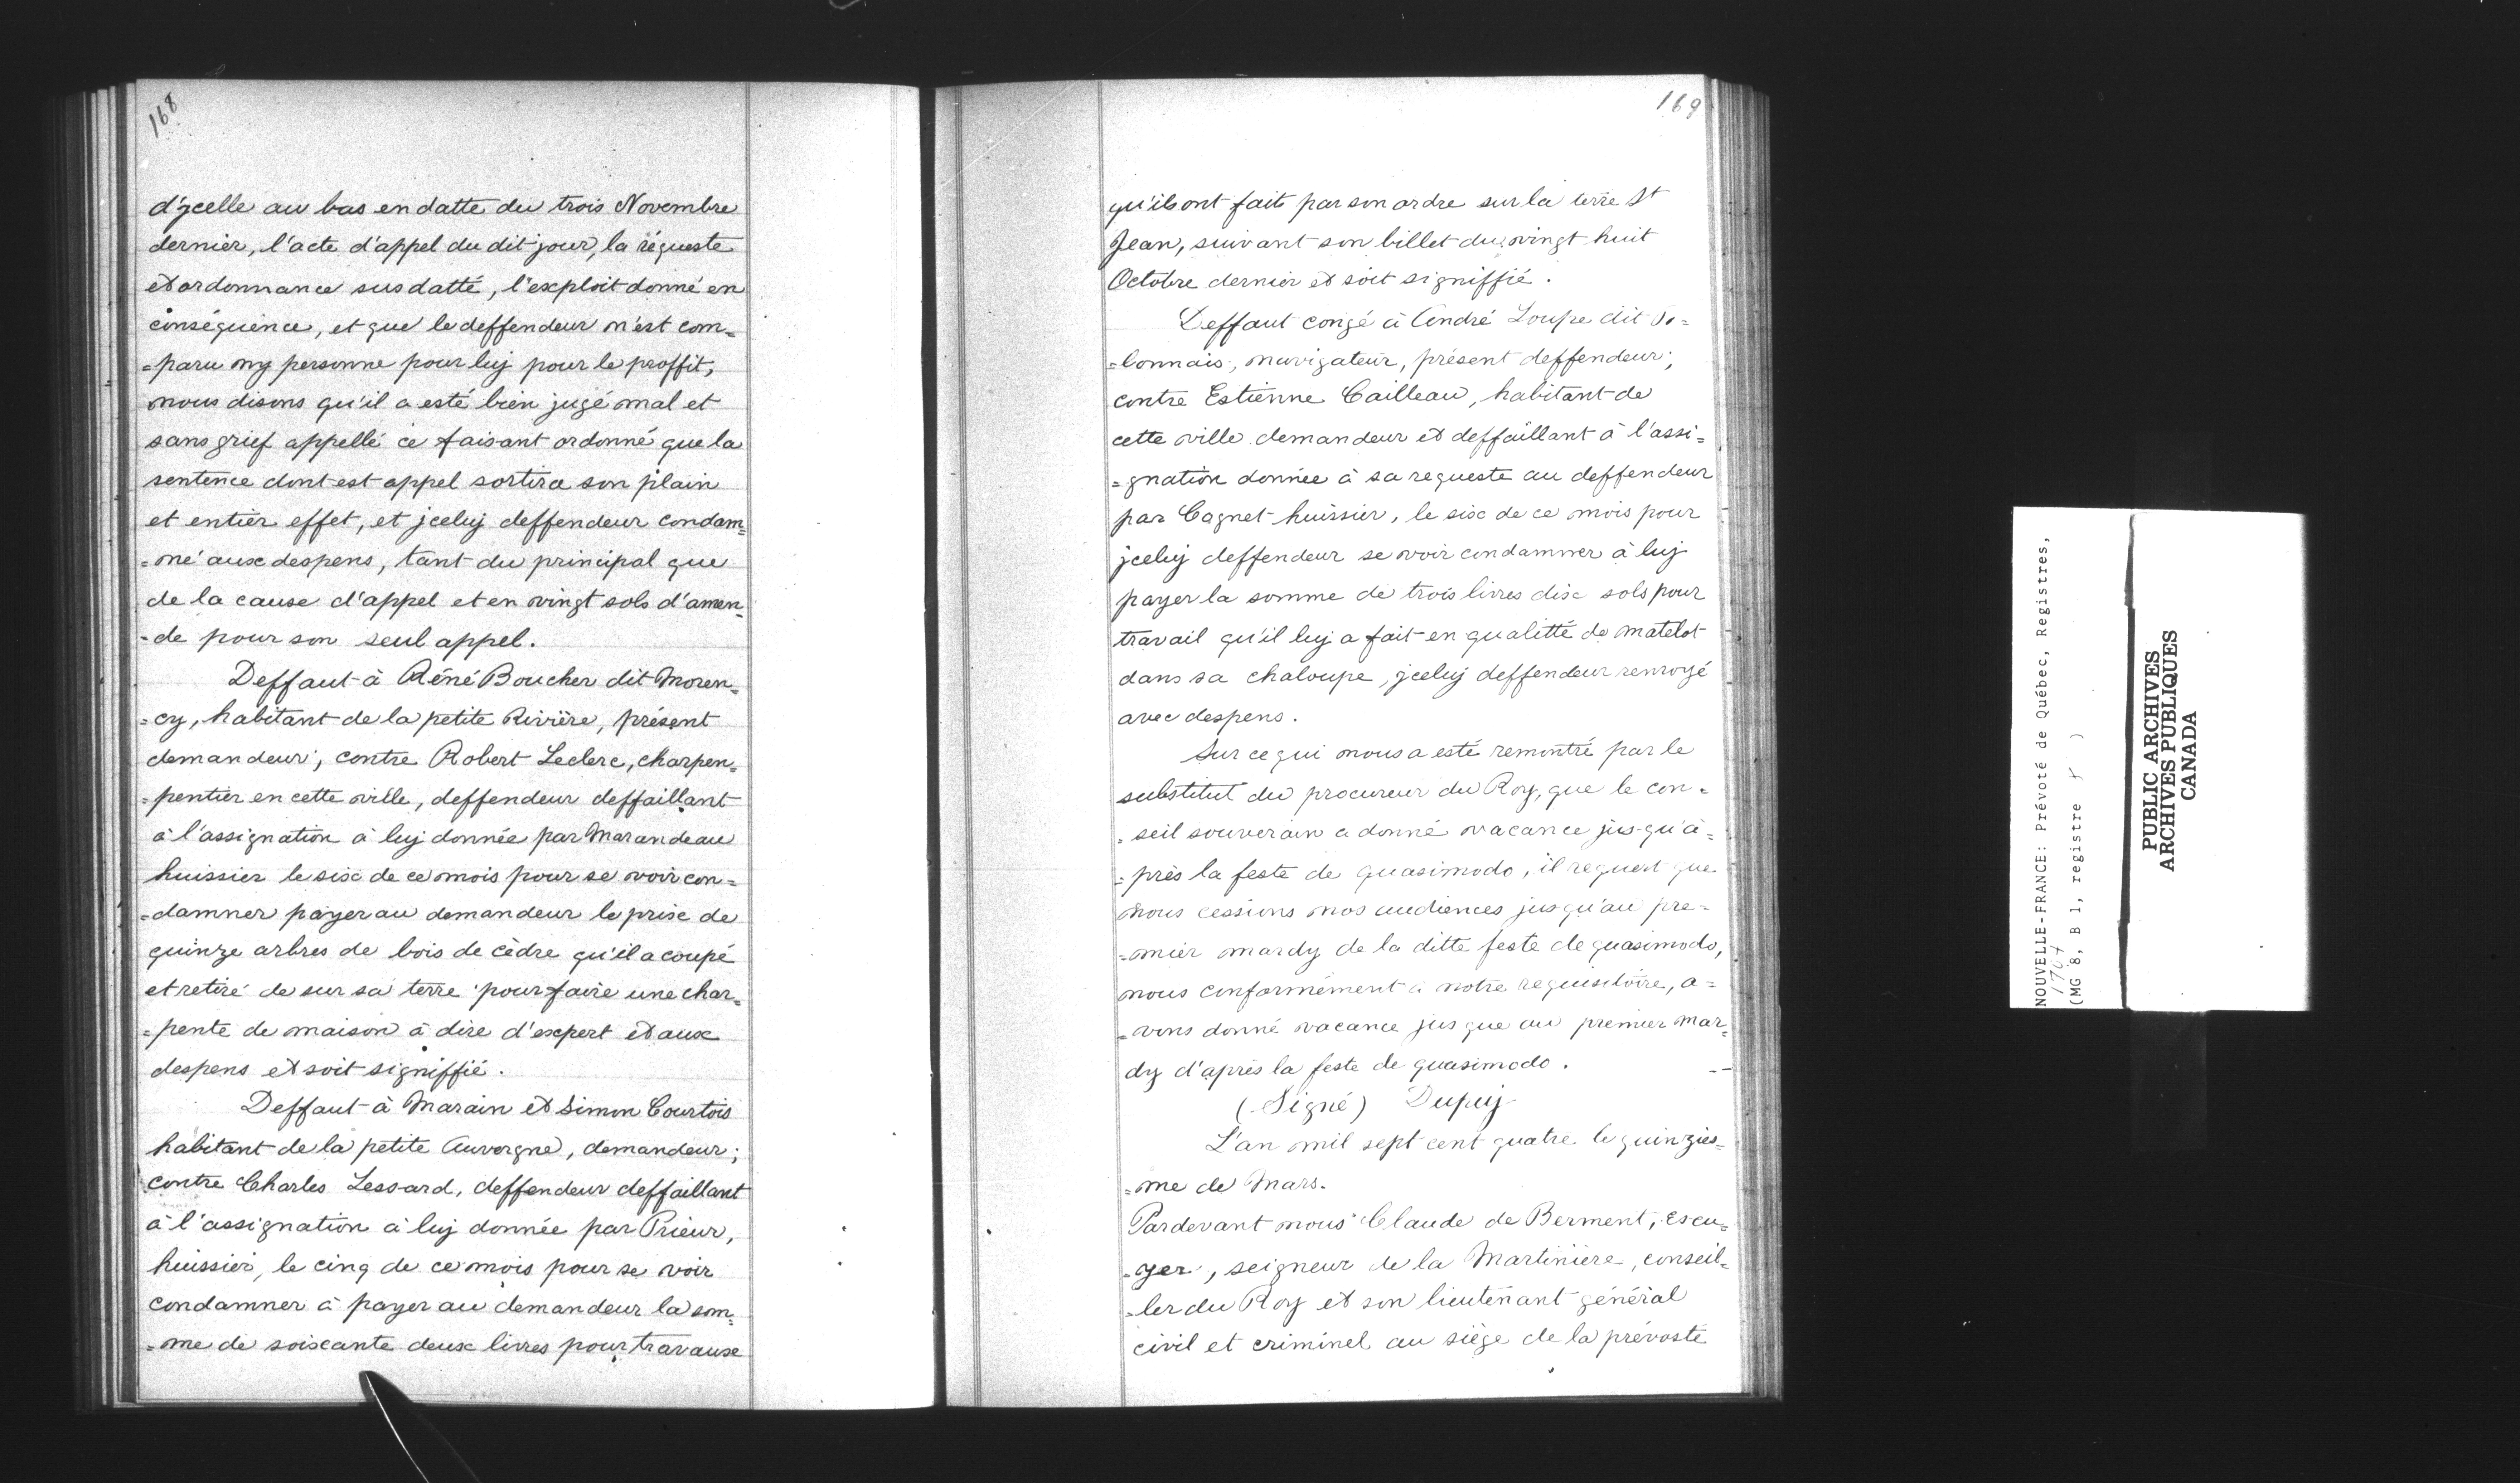 168
d'ycelle au bas en datte du trois Novembre
dernier, l'acte d'appel du dit jour, la réqueste
et ordonnance susdatté, l'exploit donné en
conséquence, et que le deffendeur n'est com=
=paru ny personne pour luy pour le proffit,
nous disons qu'il a esté bien jugé mal et
sans grief appellé ce faisant ordonné que la
sentence dont est appel sortira son plain
et entier effet, et jceluy deffendeur condam=
=né aux despens, tant du principal que
de la cause d'appel et en vingt sols d'amen=
=de pour son seul appel.
Deffaut à Réné Boucher dit Moren=
=cy, habitant de la petite Rivière, présent
demandeur; contre Robert Leclerc, charpen=
=pentier en cette ville, deffendeur deffaillant
à l'assignation à luy donnée par Marandeau
huissier le six de ce mois pour se voir con=
=damner payer au demandeur le prix de
quinze arbres de bois de cèdre qu'il a coupé
et retiré de sur sa terre pour faire une char=
=pente de maison à dire d'expert et aux
despens et soit signiffié.
Deffaut à Marain et Simon Courtois
habitant de la petite Auvergne, demandeur;
contre Charles Lessard, deffendeur deffaillant
à l'assignation à luy donnée par Prieur,
huissier, le cinq de ce mois pour se voir
condamner à payer au demandeur la som=
=me de soixante deux livres pour travaux
169
qu'ils ont fait par son ordre sur la terre St
Jean, suivant son billet du vingt huit
Octobre dernier et soit signiffié.
Deffaut congé à André Loupe dit Po=
=lonnais, navigateur, présent deffendeur;
contre Estienne Cailleau, habitant de
cette ville demandeur et deffaillant à l'assi=
=gnation donnée à sa requeste au deffendeur
par Cagnet huissier, le six de ce mois pour
jceluy deffendeur se voir condamner à luy
payer la somme de trois livres dix sols pour
travail qu'il luy a fait en qualitté de matelot
dans sa chaloupe, jceluy deffendeur renvoyé
avec despens.
Sur ce qui nous a esté remontré par le
substitut du procureur du Roy, que le con=
=seil souverain a donné vacance jusqu'à=
=près la feste de quasimodo, il requert que
nous cessions nos audiences jusqu'au pre=
=mier mardy de la ditte feste de quasimodo,
nous conformément à notre requisitoire, a=
=vons donné vacance jusque au premier mar=
dy d'après la feste de quasimodo.
(Signé) Dupuy
L'an mil sept cent quatre le quinzies=
=me de Mars.
Pardevant nous Claude de Berment, escu=
=yer, seigneur de la Martinière, conseil=
=ler du Roy et son lieutenant général
civil et criminel au siège de la prévosté
NOUVELLE-FRANCE: Prévoté de Québec, Registres,
1704
(MG 8, B 1, registre )
PUBLIC ARCHIVES
ARCHIVES PUBLIQUES
CANADA